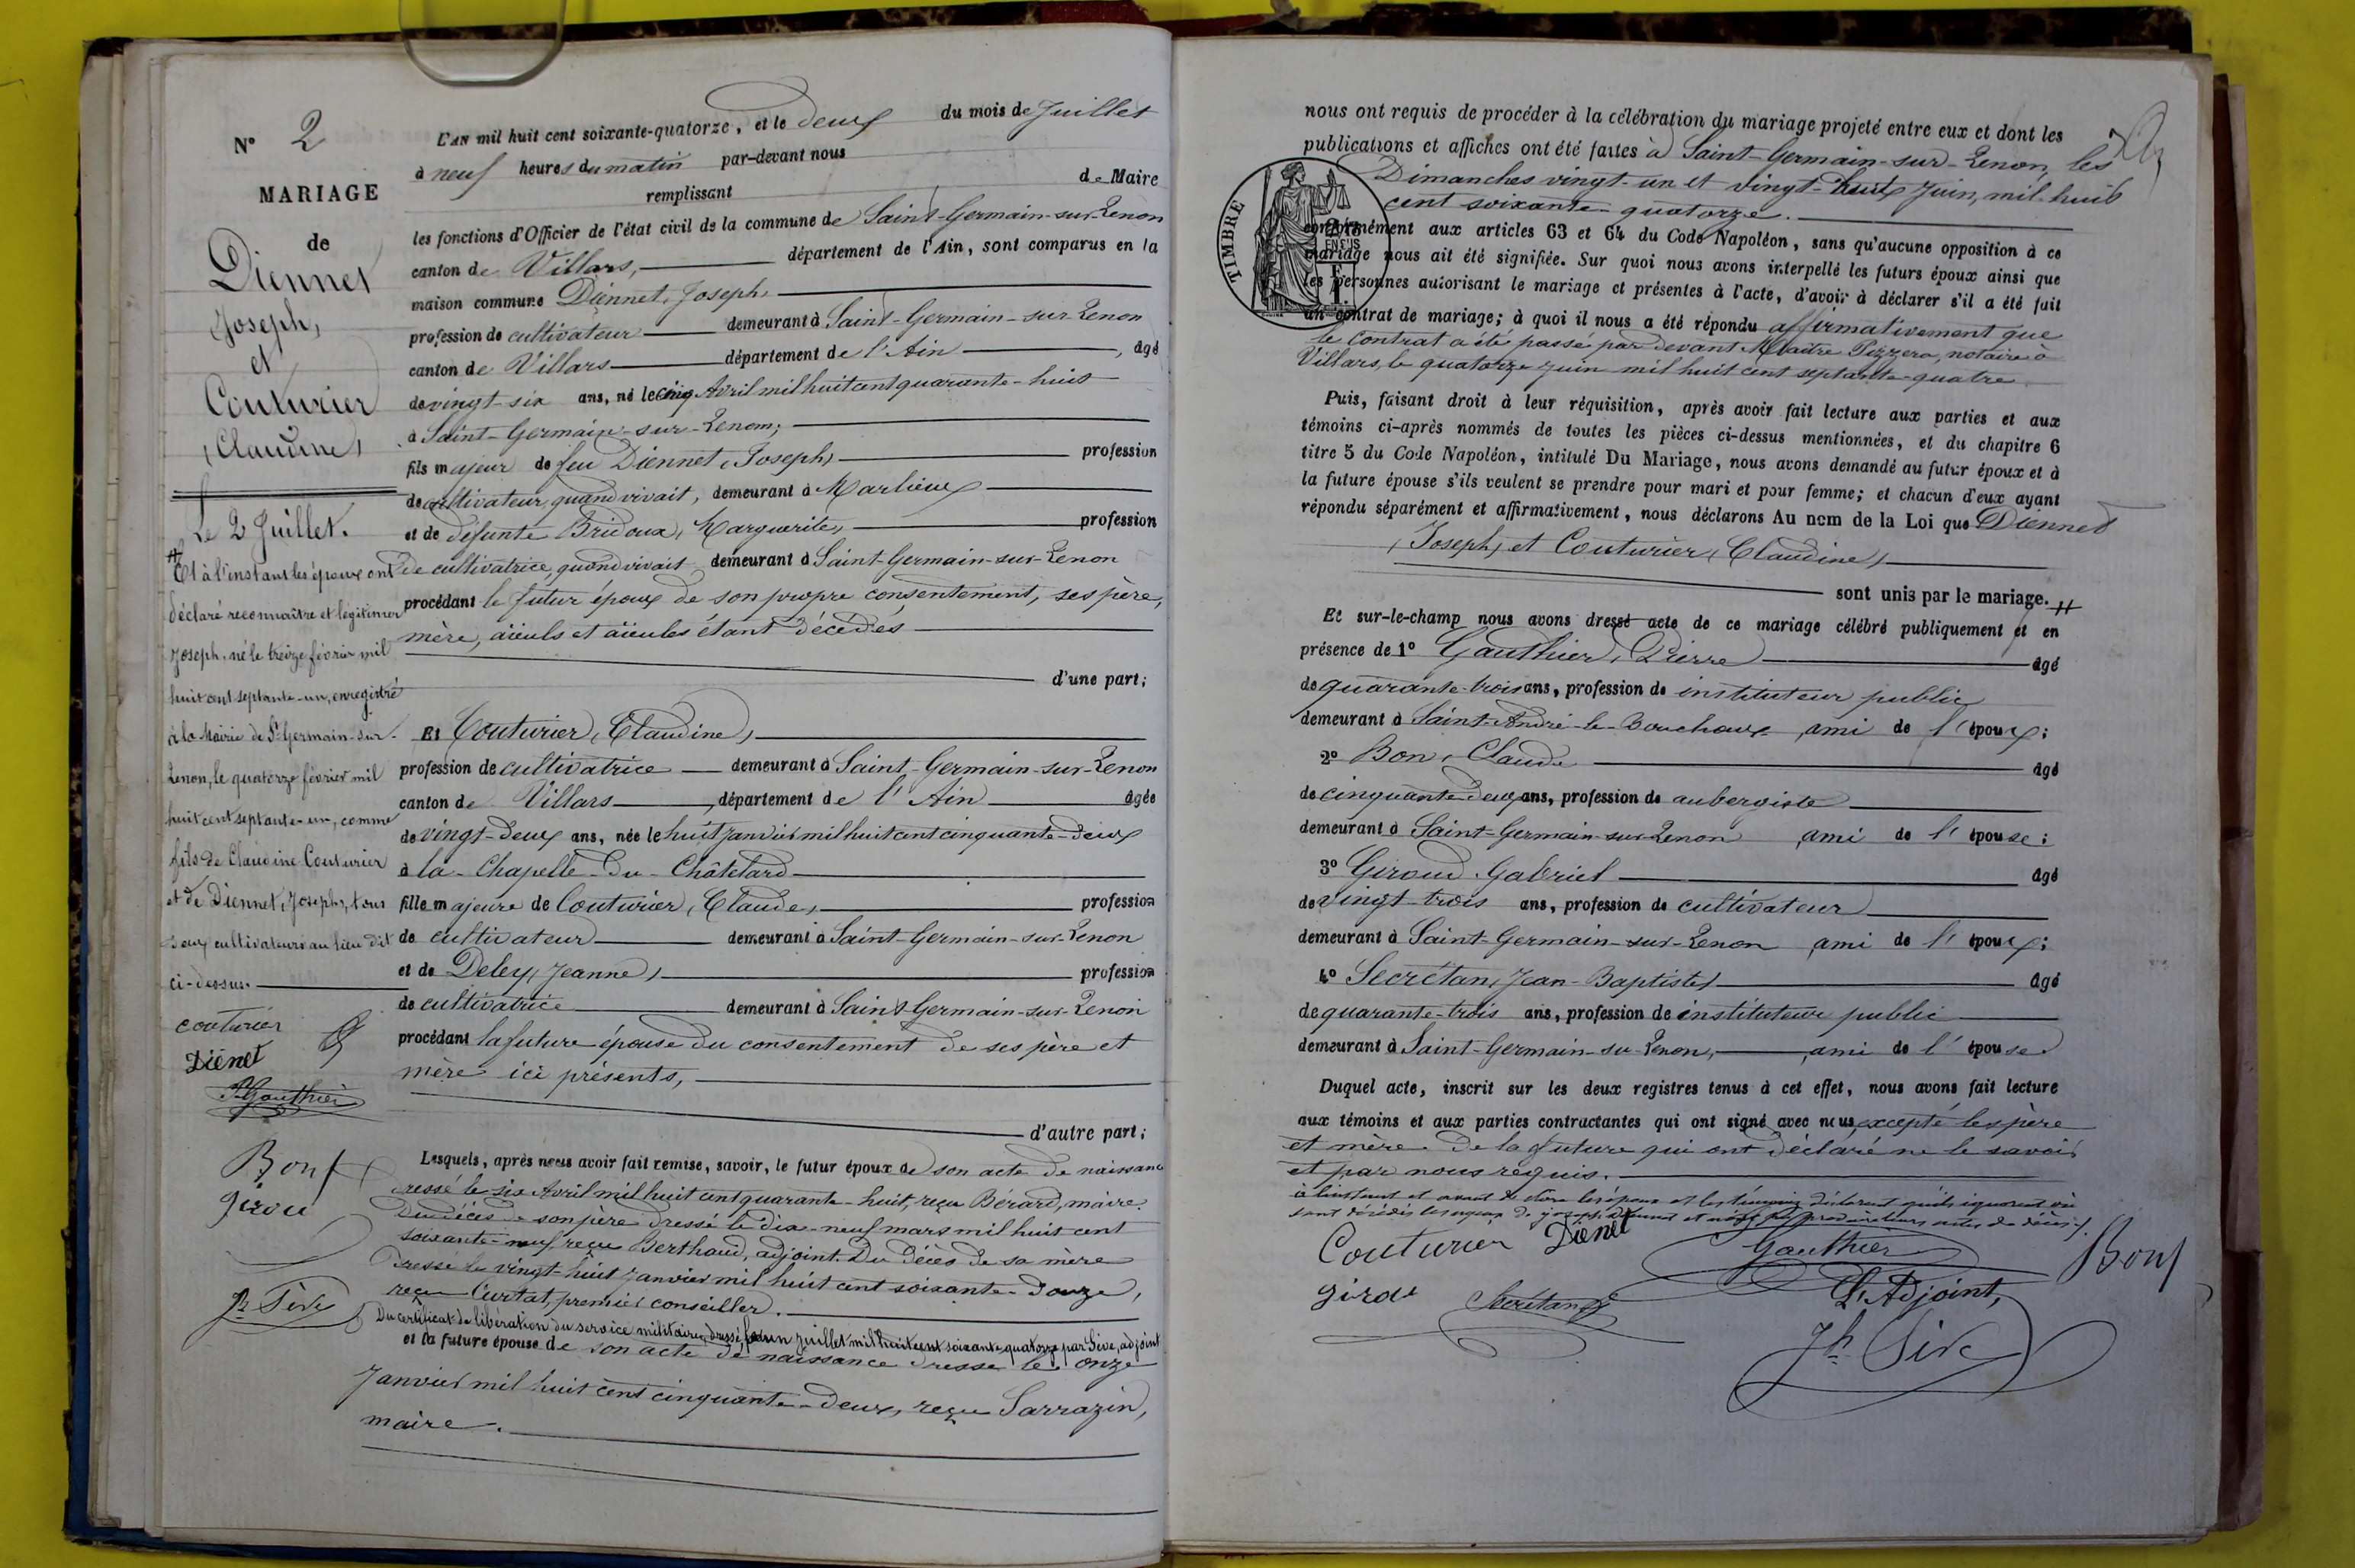 N° 2
MARIAGE
de
Diennet
Joseph,
et
Couturier
(Claudine)
Le 2 Juillet.
# Et à l'instant les époux ont
déclaré reconnaître et légitimer
Joseph, né le treize février mil
huit cent septante-un, enregistré
à la Mairie de St Germain-sur-
Renon, le quatorze février mil
huit cent septante-un, comme
fils de Claudine Couturier
et de Diennet, Joseph, tous
deux cultivateurs au lieu dit
ci-dessus.
couturier
Diénet
P. Gauthier
Bon
Girou
Jh Sève
L'AN mil huit cent soixante-quatorze, et le deux du mois de Juillet
à neuf heures du matin par-devant nous
remplissant de Maire
les fonctions d'Officier de l'état civil de la commune de Saint-Germain-sur-Renon
canton de Villars, département de l'Ain, sont comparus en la
maison commune Diennet, Joseph,
profession de cultivateur demeurant à Saint-Germain-sur-Renon
canton de Villars département de l'Ain, âgé
de vingt-six ans, né le cinq Avril mil huit cent quarante-huit
à Saint-Germain-sur-Renom;
fils majeur de feu Diennet (Joseph) profession
de cultivateur, quand vivait, demeurant à Marlieux
et de défunte Bridoux, Marguerite, profession
de cultivatrice, quand vivait demeurant à Saint-Germain-sur-Renon
procédant le futur époux de son propre consentement, ses père,
mère, aïeuls et aïeules étant décédés
d'une part;
Et Couturier (Claudine)
profession de cultivatrice demeurant à Saint-Germain-sur-Renon
canton de Villars, département de l'Ain âgée
de vingt-deux ans, née le huit Janvier mil huit cent cinquante-deux
à la-Chapelle-du-Châtelard
fille majeure de Couturier (Claude) profession
de cultivateur demeurant à Saint-Germain-sur-Renon
et de Deley (Jeanne) profession
de cultivatrice demeurant à Saint-Germain-sur-Renon
procédant la future épouse du consentement de ses père et
mère ici présents,
d'autre part;
Lesquels, après nous avoir fait remise, savoir, le futur époux de son acte de naissance
dressé le six Avril mil huit cent quarante-huit, reçu Bérard, maire.
Du décès de son père dressé le dix-neuf mars mil huit cent
soixante-neuf, reçu Berthaud, adjoint. Du décès de sa mère
dressé le vingt-huit Janvier mil huit cent soixante-douze,
reçu Curtat, premier conseiller.
Du certificat de libération du service militaire, dressé le un Juillet mil huit cent soixante quatorze par Sève, adjoint
et la future épouse de son acte de naissance dressé le onze
Janvier mil huit cent cinquante-deux, reçu Sarrazin,
maire.
nous ont requis de procéder à la célébration du mariage projeté entre eux et dont les
publications et affiches ont été faites à Saint-Germain-sur-Renon, les
Dimanches vingt-un et vingt-huit Juin, mil-huit
cent soixante-quatorze.
TIMBRE
conformément aux articles 63 et 64 du Code Napoléon, sans qu'aucune opposition à ce
mariage nous ait été signifiée. Sur quoi nous avons interpellé les futurs époux ainsi que
les personnes autorisant le mariage et présentes à l'acte, d'avoir à déclarer s'il a été fait
un contrat de mariage; à quoi il nous a été répondu affirmativement que
le Contrat a été passé par devant Maître Pizzera, notaire à
Villars, le quatorze juin mil huit cent septante-quatre
Puis, faisant droit à leur réquisition, après avoir fait lecture aux parties et aux
témoins ci-après nommés de toutes les pièces ci-dessus mentionnées, et du chapitre 6
titre 5 du Code Napoléon, intitulé Du Mariage, nous avons demandé au futur époux et à
la future épouse s'ils veulent se prendre pour mari et pour femme; et chacun d'eux ayant
répondu séparément et affirmativement, nous déclarons Au nom de la Loi que Diennet
(Joseph) et Couturier (Claudine)
sont unis par le mariage. #
Et sur-le-champ nous avons dressé acte de ce mariage célébré publiquement et en
présence de 1° Gauthier, Pierre âgé
de quarante-trois ans, profession de instituteur public
demeurant à Saint-André-le-Bouchoux ami de l'époux;
2° Bon, Claude âgé
de cinquante deux ans, profession de aubergiste
demeurant à Saint-Germain-sur-Renon ami de l'épouse;
3° Giroud Gabriel âgé
de vingt-trois ans, profession de cultivateur
demeurant à Saint-Germain-sur-Renon ami de l'époux;
4° Secrétan, Jean-Baptiste âgé
de quarante-trois ans, profession de instituteur public
demeurant à Saint-Germain-su-Renon, ami de l'épouse.
Duquel acte, inscrit sur les deux registres tenus à cet effet, nous avons fait lecture
aux témoins et aux parties contractantes qui ont signé avec nous, excepté les père
et mère de la future qui ont déclaré ne le savoir
et par nous requis.
à l'instant et avant de clore les époux et les témoins déclarent qu'ils ignorent où
sont décédés les ayeux de joseph Diennet et actes de décès
Couturier Diénet Gauthier Bon
girou Secrétan L'Adjoint,
Jh Sève